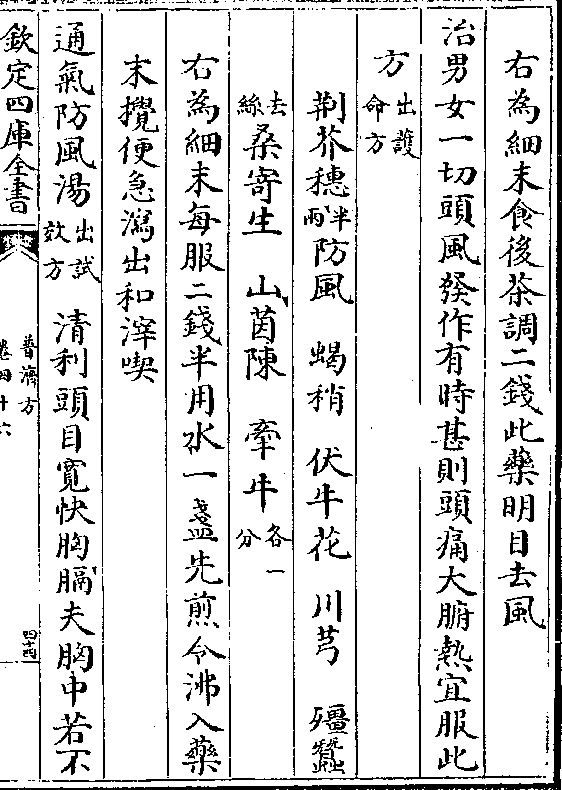 右為細末食後茶調二錢此藥明目去風
治男女一切頭風發作有時甚則頭痛大腑熱宜服此
方出護命方
荆芥穗半兩防風 蝎稍 伏牛花 川芎 殭蠶
去絲桑寄生 山茵陳 牽牛各一分
右為細末每服二錢半用水一盞先煎令沸入藥
末攪便急瀉出和滓喫
通氣防風湯出試效方 清利頭目寛快胸膈夫胸中若不
欽定四庫全書
普濟方
卷四十六
四十四